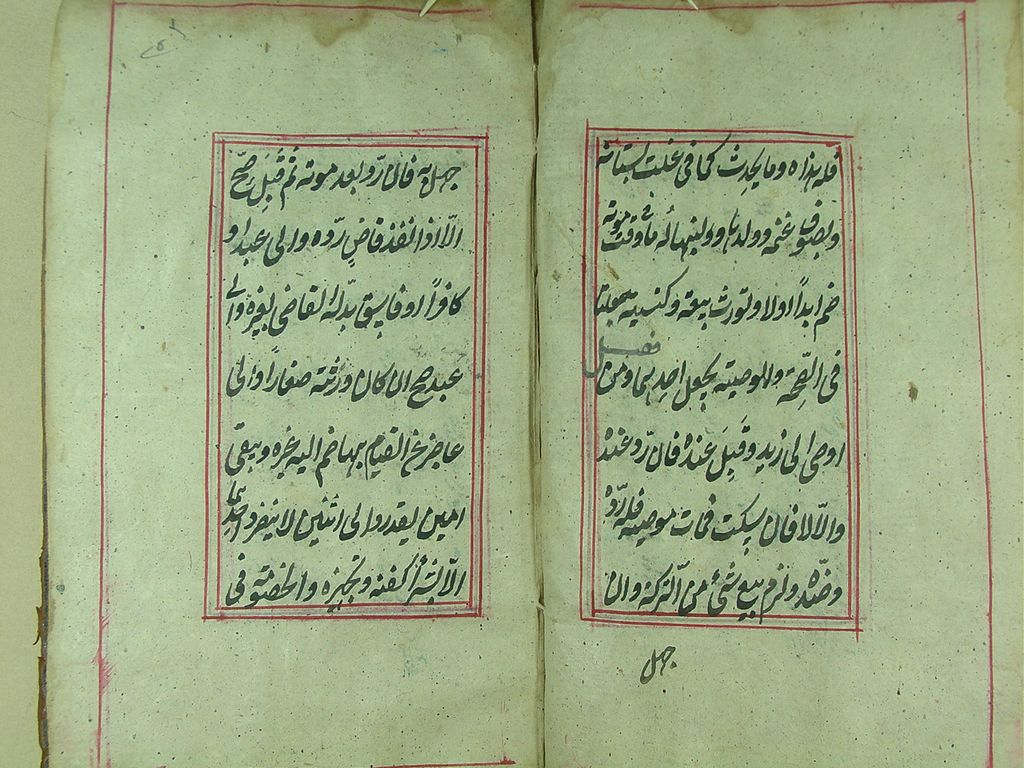 فله هذاه وما يحدث كما فى غلت بستانه
وبصوف غنمه وولدها ولبنها له ما فى وقت موته
ضم ابداً اولا وتورث بيعة وكنيسة جعلتا
فصل
فى الصّحّة والوصية يجعل احديهما ومن
اوصى الى زيد وقَبِلَ عنده فان ردّ عنده
والّا لا فان سكت فمات موصيه فله ردّه
وضدّه ولزم بيع شئ من التركة وان
جهل
جهل به فان ردّ بعد موته ثم قَبِلَ صحّ
الّا اذا نفذ قاضٍ ردّه والى عبد او
كافراً او فاسق بدّله القاضى بغيره والى
عبده صح ان كان ورثته صغاراً والى
عاجز عن القيام بها ضم اليه غيره ويبقى
امين يقدر والى اثنين لا ينفرد احدهما
الّا بشراء كفنه وتجهيزه والخصومة فى